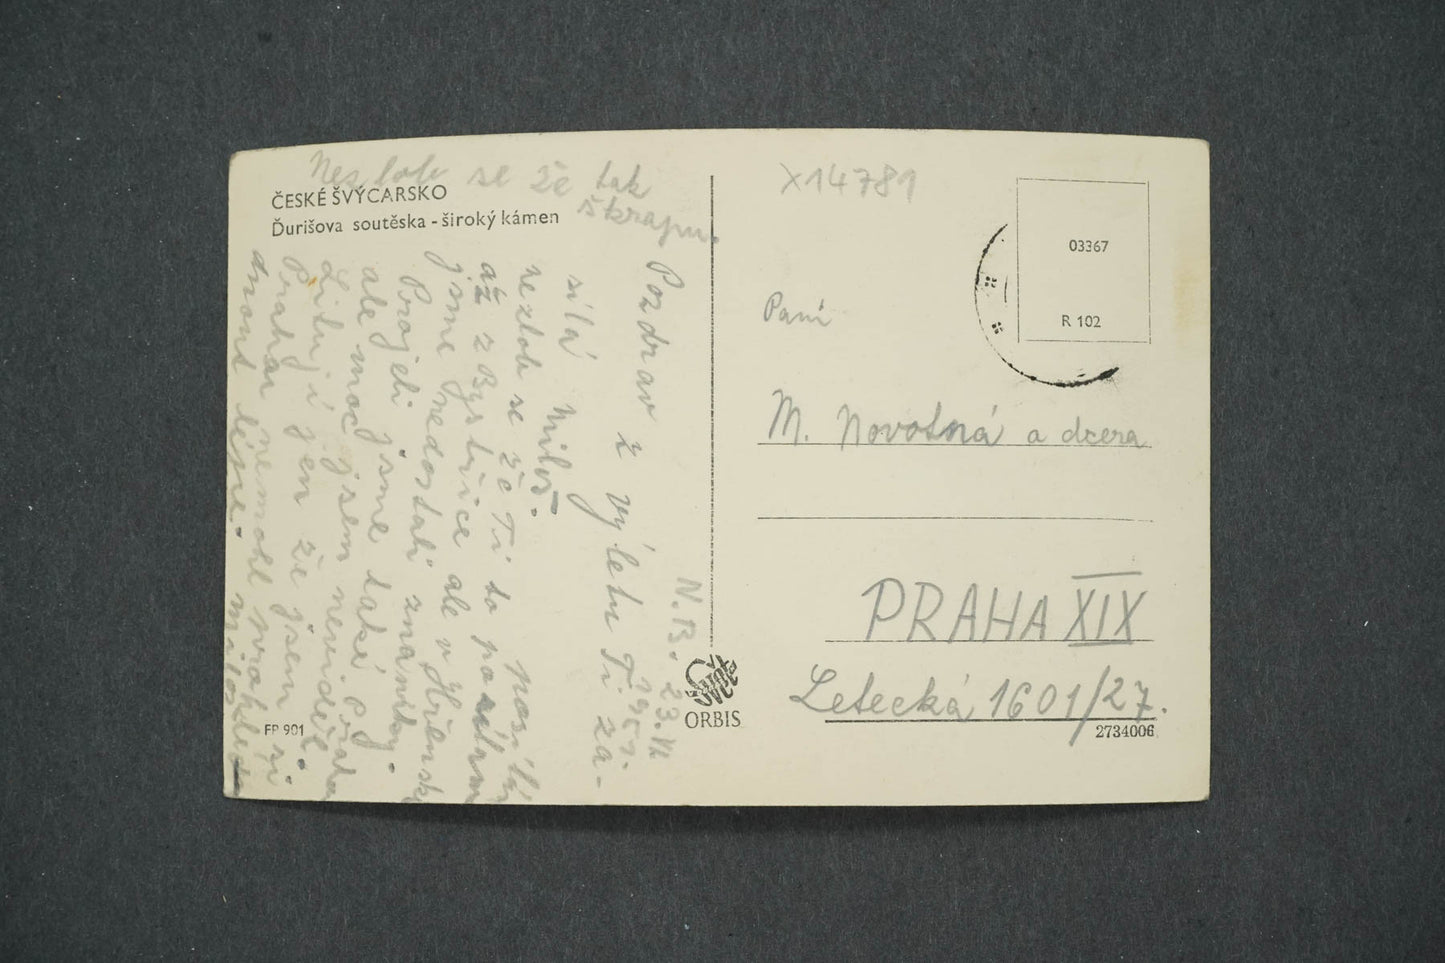 Nezlob se že tak
škrapu.
ČESKÉ ŠVÝCARSKO
Ďurišova soutěska - široký kámen
N.B. 23. VI
1959.
Pozdrav z výletu Ti za-
sílá Miloš.
nezlob se že Ti to posílám
až z Bystřice ale v Hřensku
jsme nedostali známky.
Projeli jsme také Prahu
ale moc jsem neviděl.
Lituji jen že jsem si
Prahu nemohl prohlédnout
FP 901
ORBIS
X14781
03367
R 102
Paní
M. Novotná a dcera
PRAHA XIX
Letecká 1601/27.
2734006